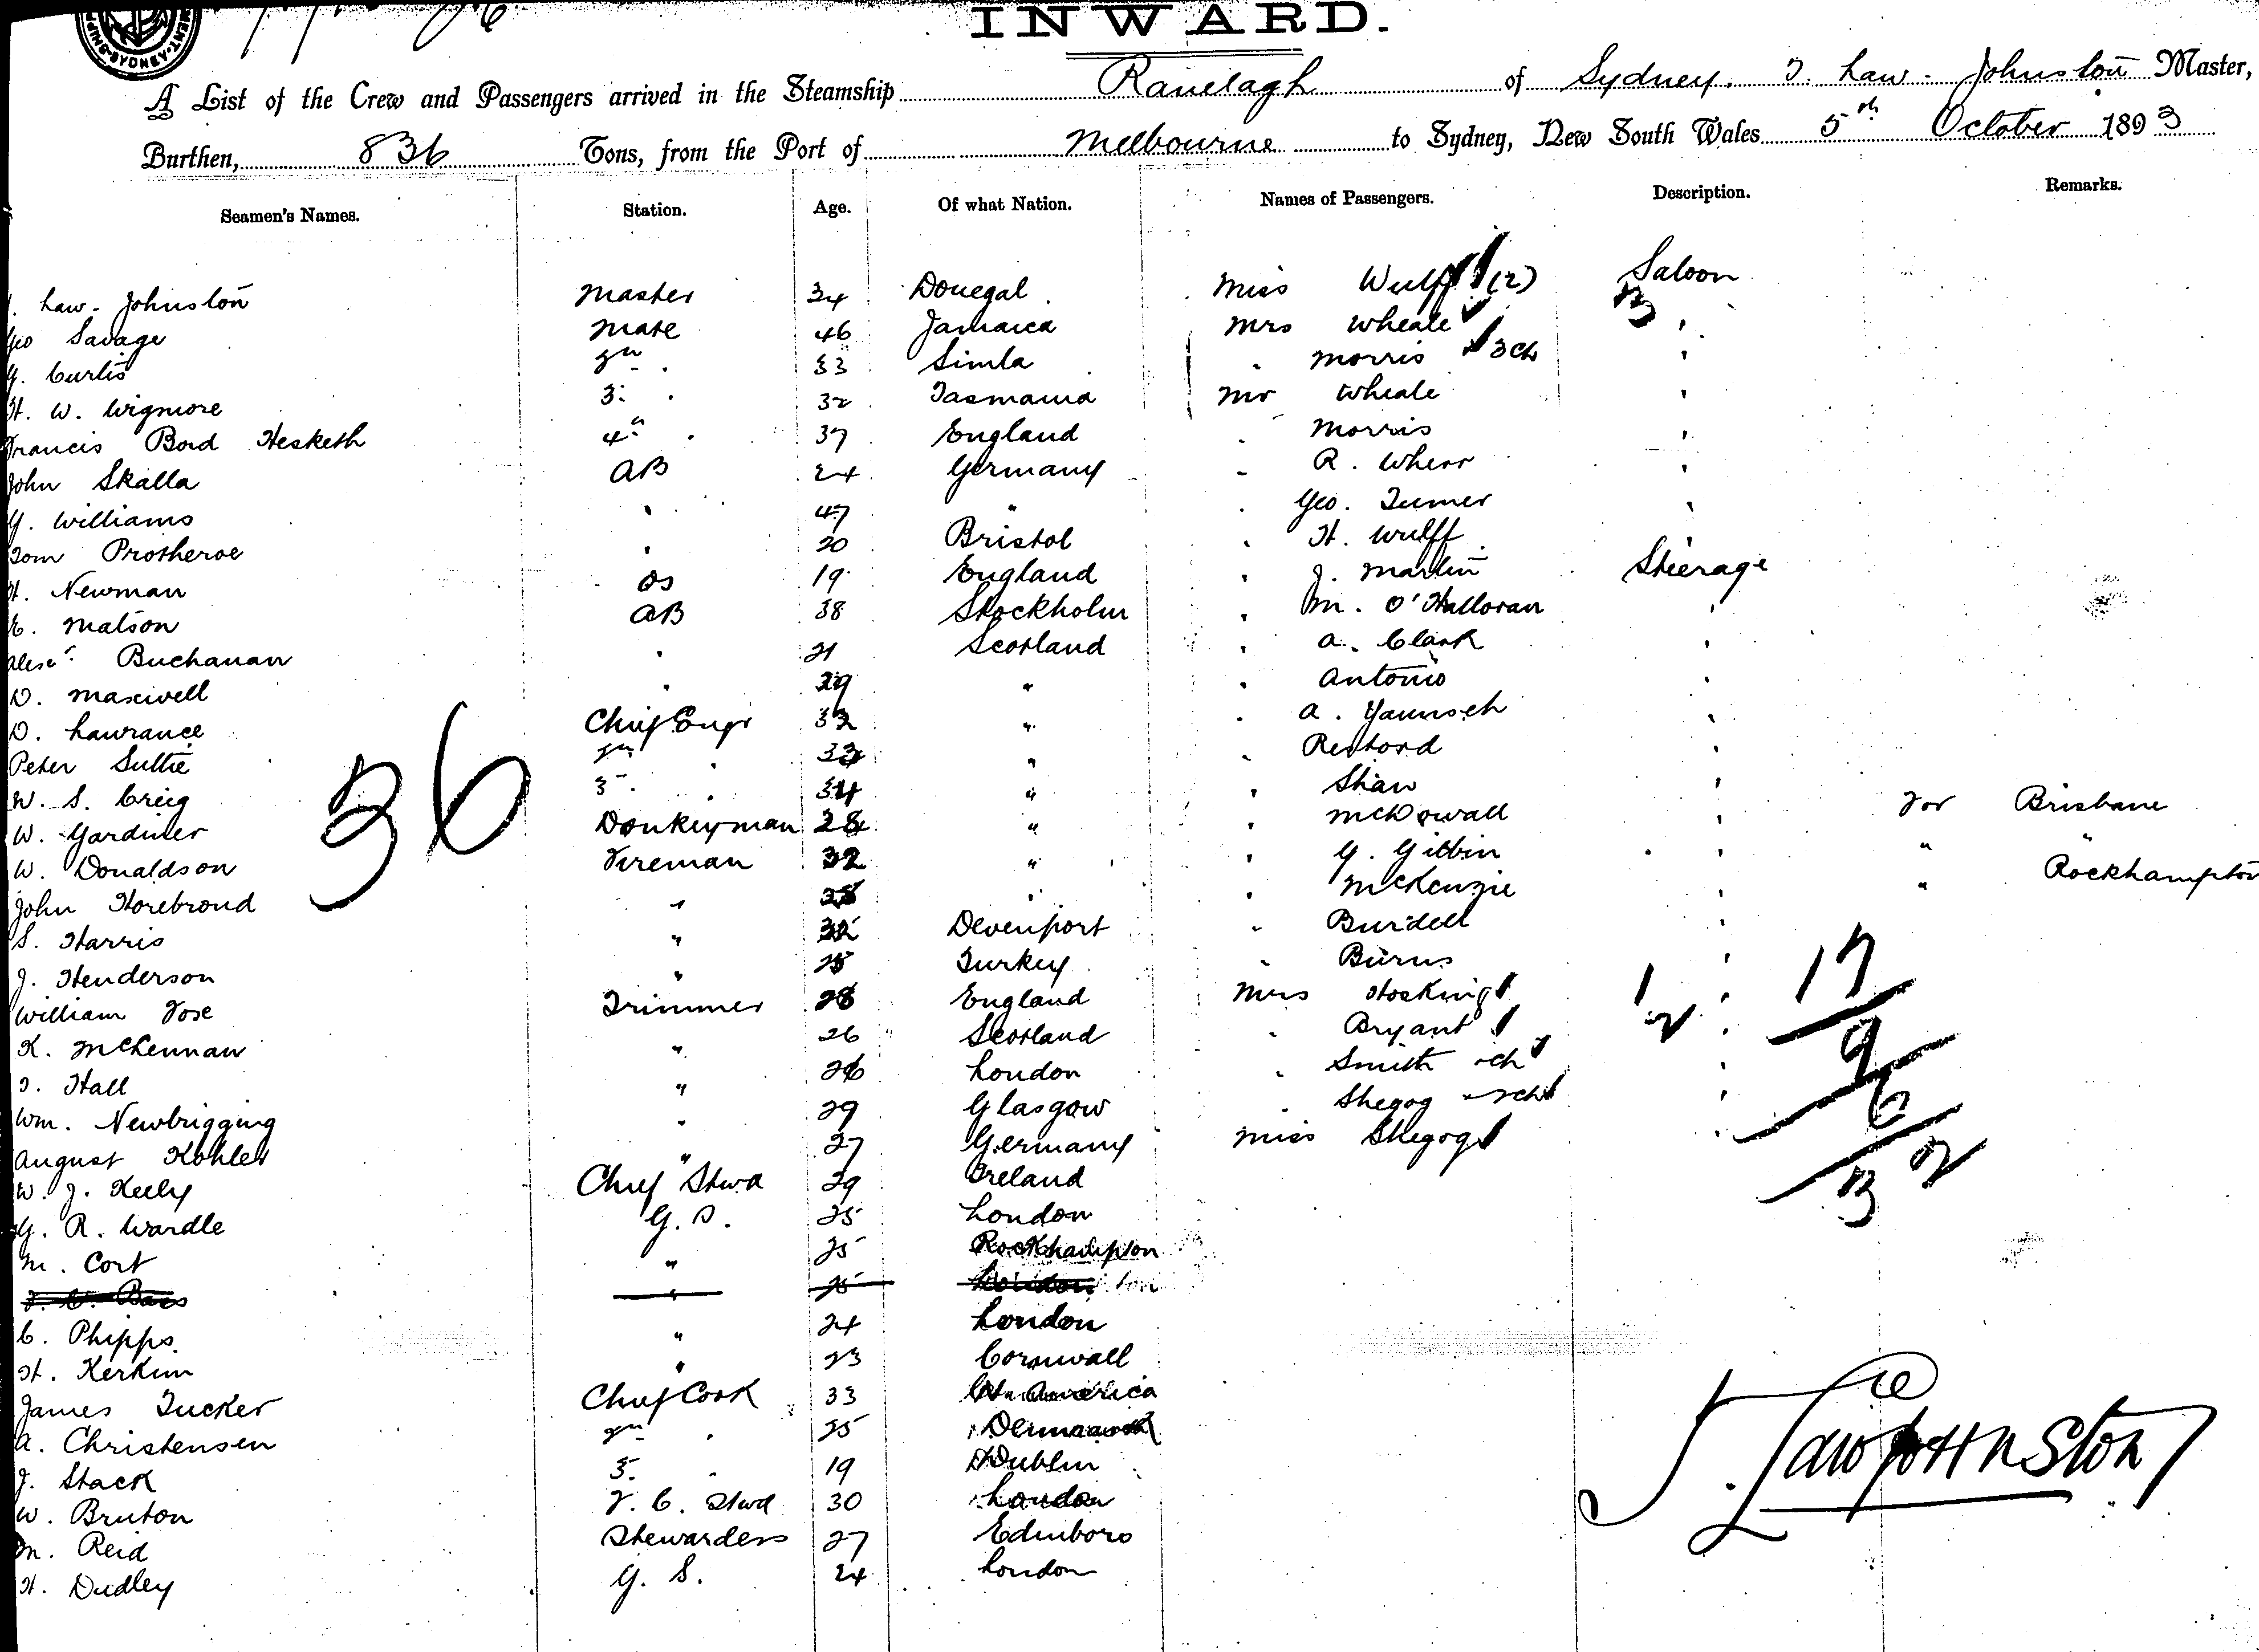 INWARD.
A List of the Crew and Passengers arrived in the Steamship Ranelagh of Sydney. J. Law-Johnston Master,
Burthen, 836 Tons, from the Port of Melbourne to Sydney, New South Wales 5th October 1893
Seamen's Names. Station. Age. Of what Nation. Names of Passengers. Description. Remarks.
J. Law-Johnston Master 34 Donegal Miss Wulff (2) Saloon
Geo Savage Mate 46 Jamaica Mrs Wheale "
G. Curtis 2nd " 33 Simla " Morris 3 ch "
H. W. Wigmore 3. " 32 Tasmania Mr Wheale "
Francis Bord Hesketh 4th " 37 England " Morris "
John Skalla AB 24 Germany " R. Wherr "
G. Williams " 47 " " Geo. Turner "
Tom Protheroe " 20 Bristol " H. Wulff
H. Newman OS 19 England " J. Martin Steerage
E. Matson AB 38 Stockholm " M. O'Halloran "
Alexr. Buchanan " 21 Scotland " A. Clark "
D. Maxwell " 29 " " Antonio "
D. Laurance Chief Engr 32 " " A. Yaunseh "
Peter Suttie 2nd " 33 " " Restord "
W. S. Greig 3 " 34 " " Shaw "
W. Gardiner Donkeyman 28 " " McDowall " for Brisbane
W. Donaldson Fireman 32 " " G. Gilbin " " "
John Horebroud " 38 " " McKenzie " " Rockhampton
S. Harris " 32 Devenport " Burdell "
J. Henderson " 25 Turkey " Burns "
William Fose Trimmer 28 England Mrs Hosking "
K. McLennan " 26 Scotland " Bryant "
T. Hall " 26 London " Smith ch "
Wm. Newbrigging " 29 Glasgow " Shegog 2 ch "
August Kohler " 27 Germany Miss Shegog "
W. J. Keely Chief Stwd 29 Ireland
G. R. Wardle G. S. 25 London
M. Cort " 25 Rockhampton
" 25 London
C. Phipps. " 24 London
H. Kerkin " 23 Cornwall
James Tucker Chief Cook 33 America
A. Christensen 2nd " 25 Denmark
J. Stack 3. " 19 Dublin
W. Bruton F. C. Stwd 30 London
M. Reid Stewardess 27 Edinboro
H. Dudley G. S. 24 London
36
3
1
2
17
9
6
32
J. Law Johnston